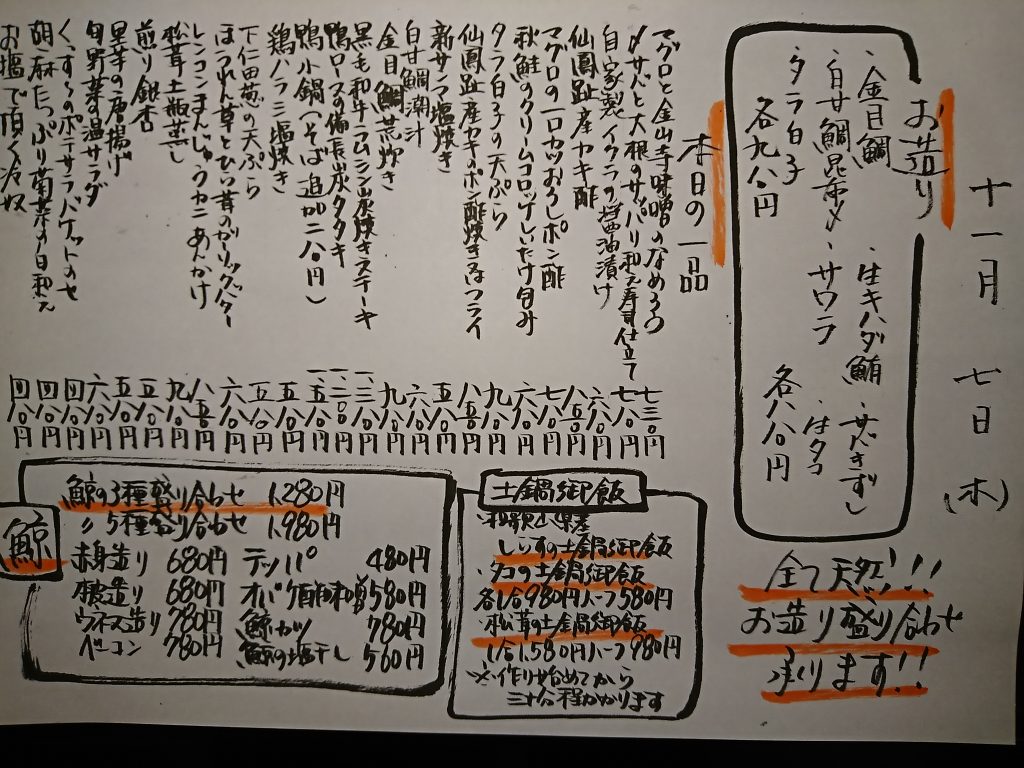 十一月 七日 (木)
お造り
・金目鯛 ・生キハダ鮪 ・サバきずし
・白甘鯛昆布〆 ・サワラ ・生タコ
・タラ白子
各九八〇円 各八八〇円
全て天然!!!
お造り盛り合わせ
承ります!!
本日の一品
マグロと金山寺味噌のなめろう 七三〇円
〆サバと大根のサッパリ和え寿司仕立て 七八〇円
自家製イクラの醤油漬け 六八〇円
仙鳳趾産カキ酢 八五〇円
マグロの一口カツおろしポン酢 七八〇円
秋鮭のクリームコロッケしいたけ旬み 六八〇円
タラ白子の天ぷら 九八〇円
仙鳳趾産カキのポン酢焼き又はフライ 八五〇円
新サンマ塩焼き 九八〇円
白甘鯛潮汁 六八〇円
金目鯛荒炊き 九八〇円
黒毛和牛ラムシン炭焼きステーキ 一、三八〇円
鴨ロースの備長炭タタキ
鴨小鍋(そば追加二八〇円)
鶏ハラミ塩焼き 五八〇円
下仁田葱の天ぷら 五八〇円
ほうれん草とひら茸のガーリックバター 六八〇円
レンコンまんじゅうカニあんかけ 八五〇円
松茸土瓶蒸し 九八〇円
煎り銀杏 五五〇円
里芋の唐揚げ 五八〇円
旬野菜温サラダ 六八〇円
くずしのポテサラバケットのせ 四八〇円
胡麻たっぷり菊芋の白和え 四八〇円
お塩で頂く冷奴 四八〇円
土鍋御飯
・和歌山県産
しらすの土鍋御飯
・タコの土鍋御飯
各1合980円ハーフ580円
・松茸の土鍋御飯
1合1,580円ハーフ980円
※作り始めてから
三十分程かかります
鯨
鯨の3種盛り合わせ 1,280円
〃5種盛り合わせ 1,980円
赤身造り 680円 テッパ 480円
造り 680円 オバケ酢味噌 580円
ウネス造り 780円 鯨カツ 780円
ベーコン 780円 鯨の塩干し 560円